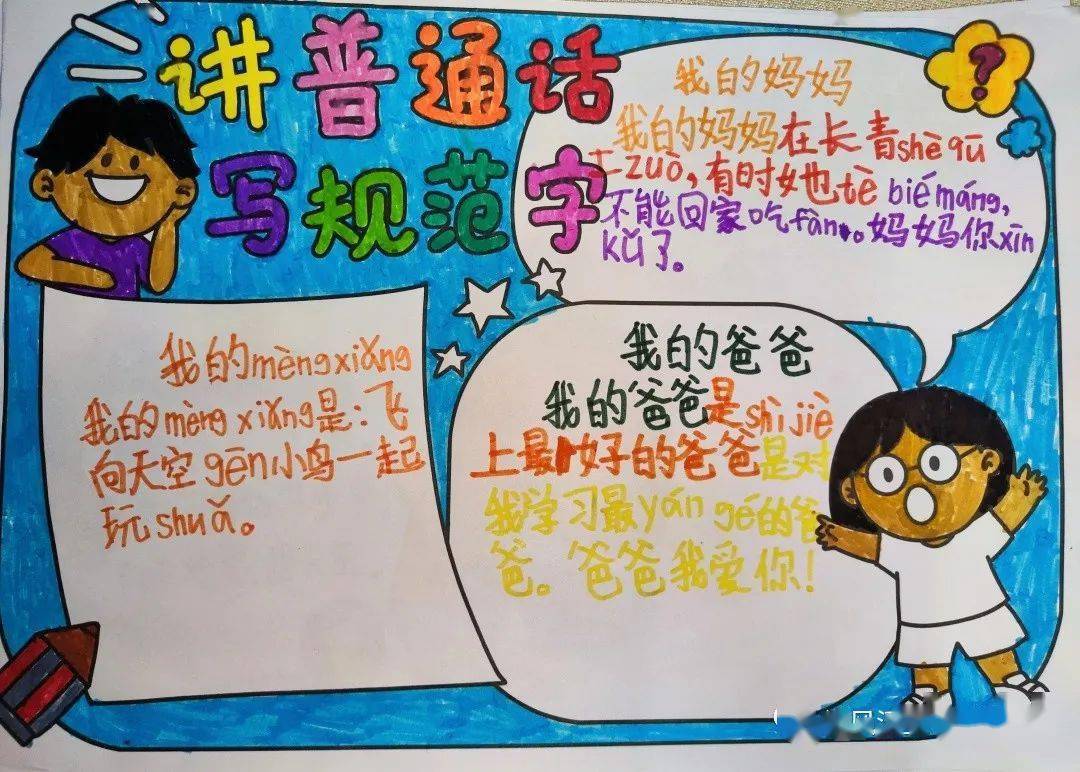 讲普通话
写规范字
我的妈妈
我的妈妈在长青shè qū
工zuò,有时她tè bié máng,
不能回家吃fàn。妈妈你xīn
kǔ了。
我的mèng xiǎng
我的mèng xiǎng是:飞
向天空gēn小鸟一起
玩shuǎ。
我的爸爸
我的爸爸是shì jiè
上最好的爸爸是对
我学习最yán gé的爸
爸。爸爸我爱你!